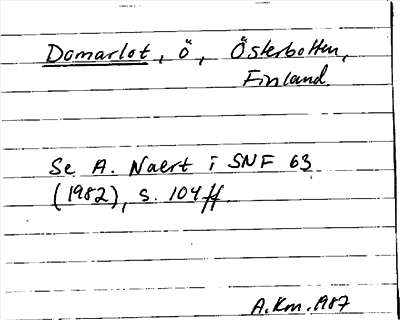 Domarlot, ö, Österbotten,
Finland.
Se A. Naert i SNF 63
(1982), s. 104 ff.
A.Km. 1987